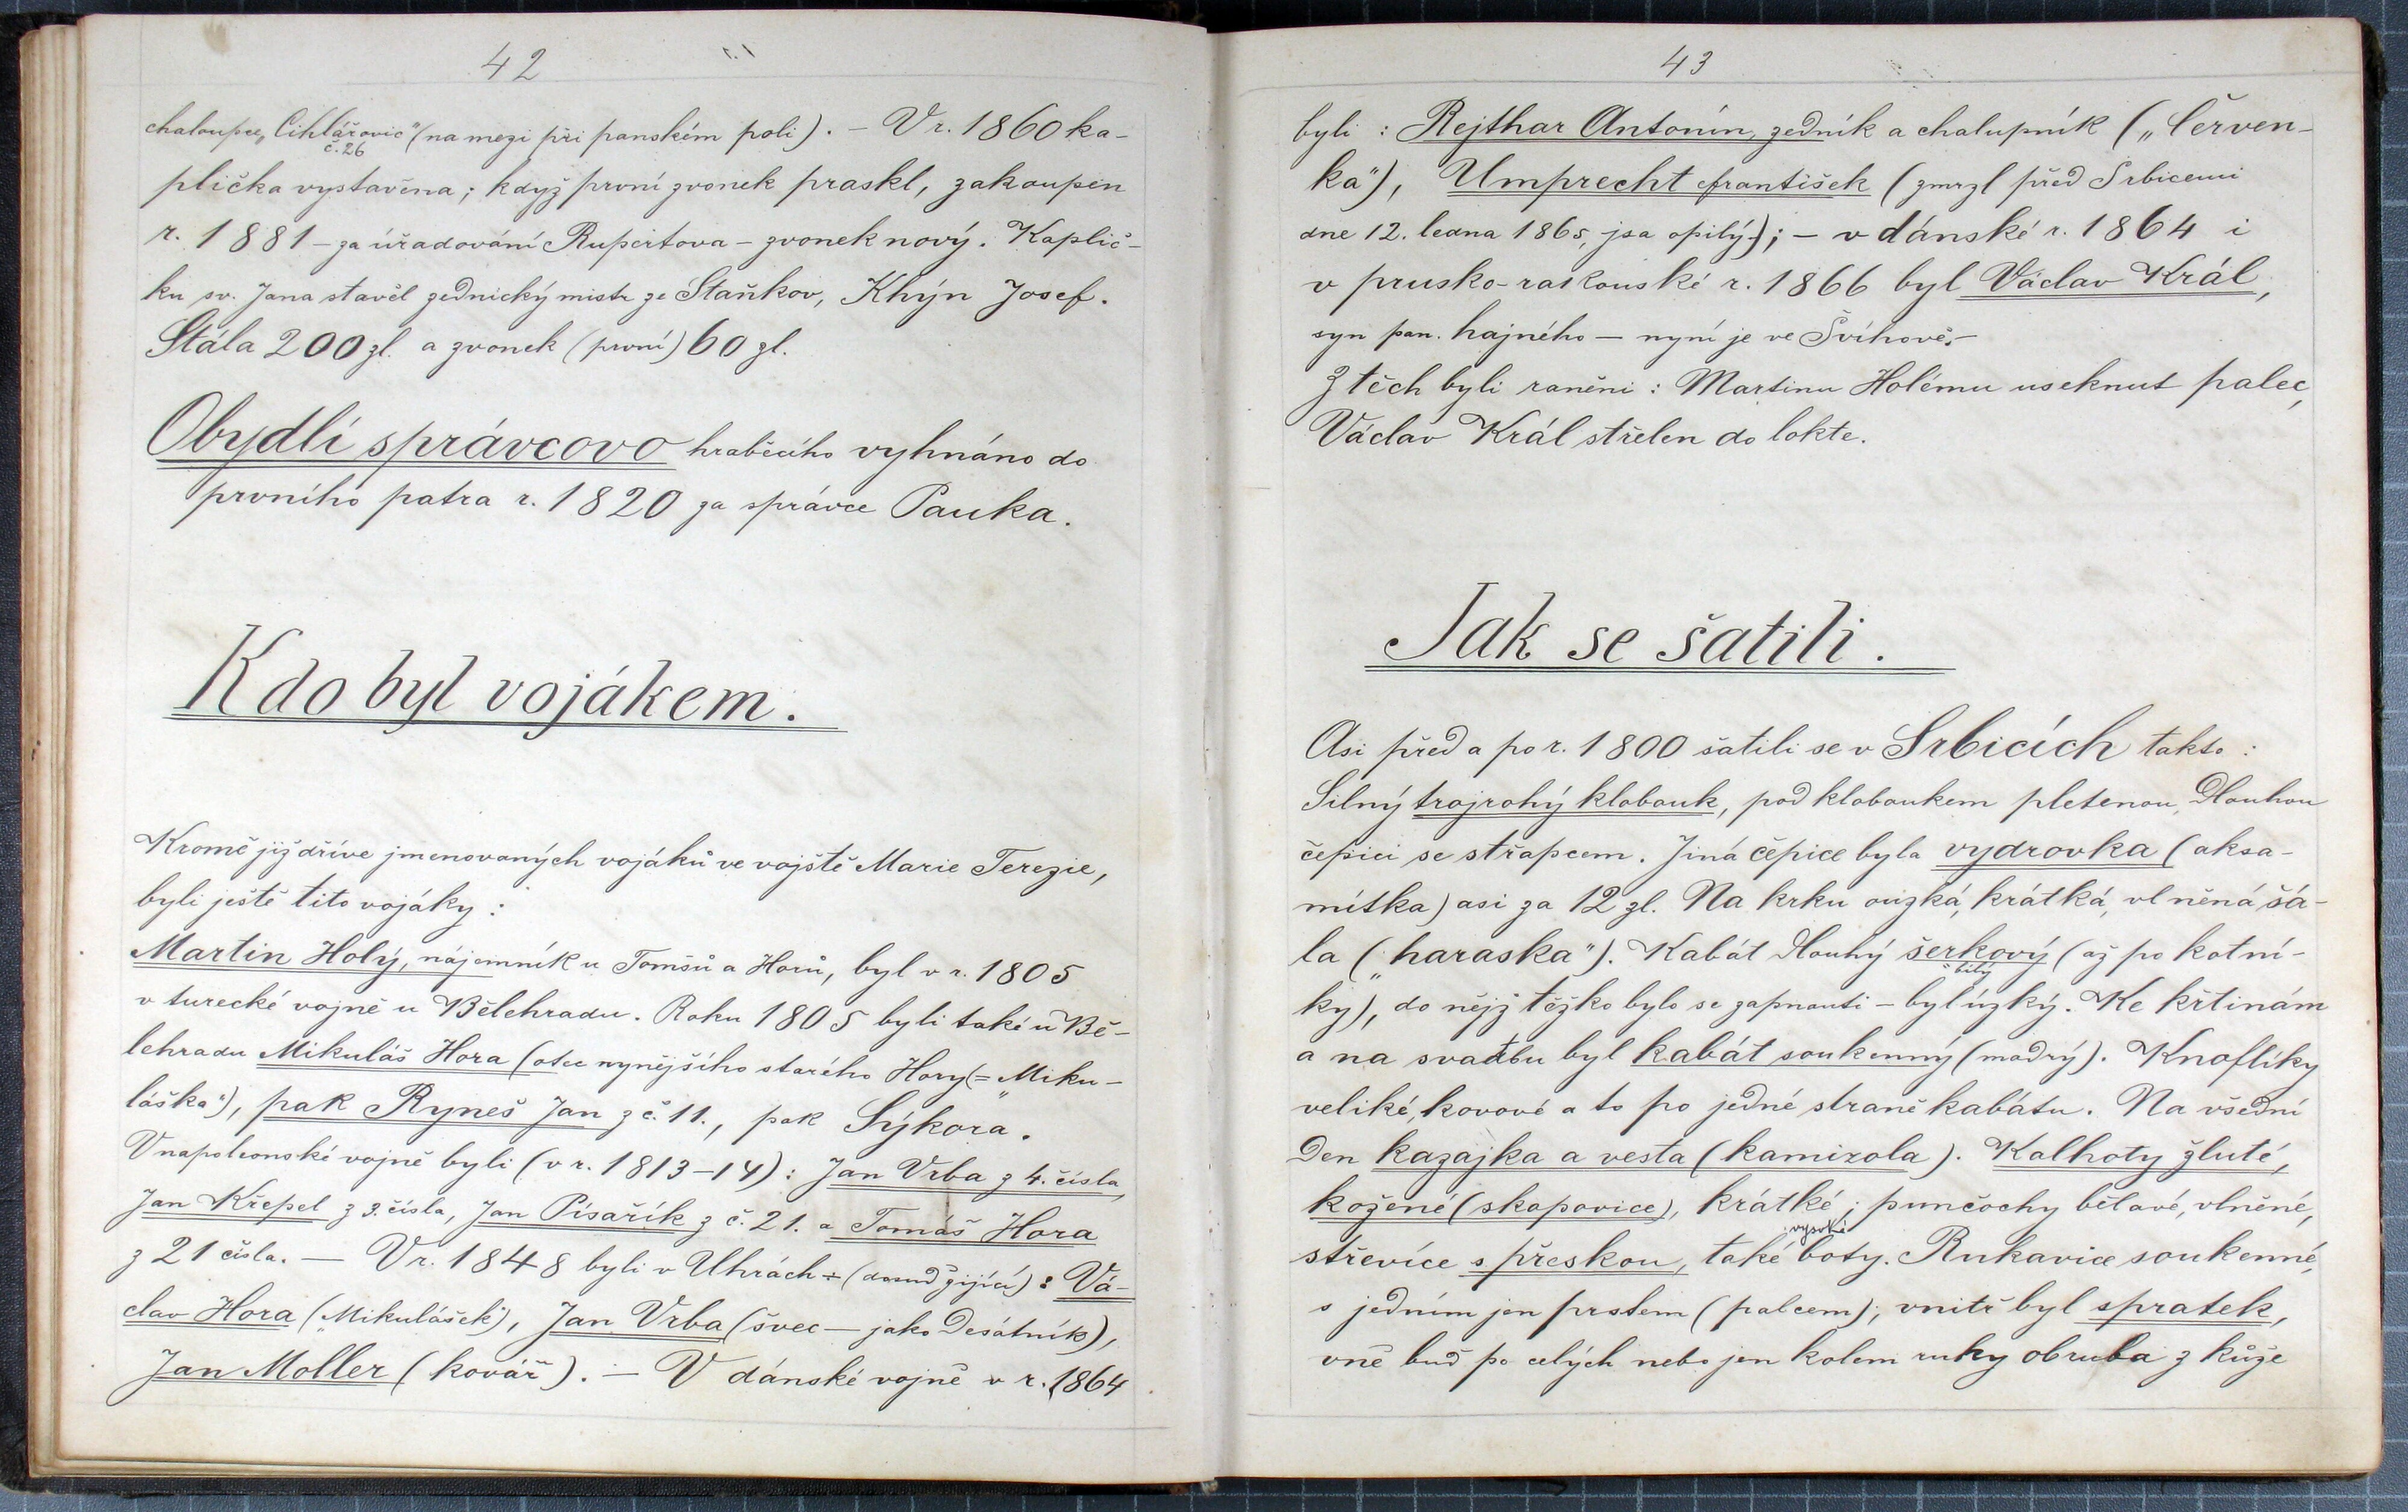 42
chaloupce „Cihlářovic" (na mezi při panském poli). – V r. 1860 ka-
č. 26
plička vystavěna; když první zvonek praskl, zakoupen
r. 1881 – za úřadování Rupertova – zvonek nový. Kaplič-
ku sv. Jana stavěl zednický mistr ze Staňkov, Khýn Josef.
Stála 200 zl. a zvonek (první) 60 zl.
Obydlí správcovo hraběcího vyhnáno do
prvního patra r. 1820 za správce Pauka.
Kdo byl vojákem.
Kromě již dříve jmenovaných vojáků ve vojště Marie Terezie,
byli ještě tito vojáky:
Martin Holý, nájemník u Tomšů a Horů, byl v r. 1805
v turecké vojně u Bělehradu. Roku 1805 byli také u Bě-
lehradu Mikuláš Hora (otec nynějšího starého Hory (= „Miku-
láška"), pak Ryneš Jan z č. 11., pak Sýkora.
V napoleonské vojně byli (v r. 1813–14): Jan Vrba z 4. čísla,
Jan Křepel z 3. čísla, Jan Písařík z č. 21. a Tomáš Hora
z 21 čísla. — V r. 1848 byli v Uhrách (dosud žijící): Vá-
clav Hora („Mikulášek"), Jan Vrba (švec — jako desátník),
Jan Moller (kovář). — V dánské vojně v r. 1864
43
byli: Rejthar Antonín, zedník a chalupník („Červen-
ka"), Umprecht František (zmrzl před Srbicemi
dne 12. ledna 1865, jsa opilý); – v dánské r. 1864 i
v prusko-rakouské r. 1866 byl Václav Král,
syn pan. hajného — nyní je ve Švihově. –
Z těch byli raněni: Martinu Holému useknut palec,
Václav Král střelen do lokte.
Jak se šatili.
Asi před a po r. 1800 šatili se v Srbicích takto:
Silný trojrohý klobouk, pod kloboukem pletenou, dlouhou
čepici se střapcem. Jiná čepice byla vydrovka (aksa-
mítka) asi za 12 zl. Na krku ouzká, krátká, vlněná šá-
la („haraska"). Kabát dlouhý šerkový (až po kotní-
bílý
ky), do nějž těžko bylo se zapnouti – byl úzký. Ke křtinám
a na svatbu byl kabát soukenný (modrý). Knoflíky
veliké, kovové a to po jedné straně kabátu. Na všední
den kazajka a vesta (kamizola). Kalhoty žluté,
kožené (skopovice), krátké; punčochy bělavé, vlněné,
vysoké
střevíce s přeskou, také boty. Rukavice soukenné,
s jedním jen prstem (palcem); vnitř byl spratek,
vně buď po celých nebo jen kolem ruky obruba z kůže